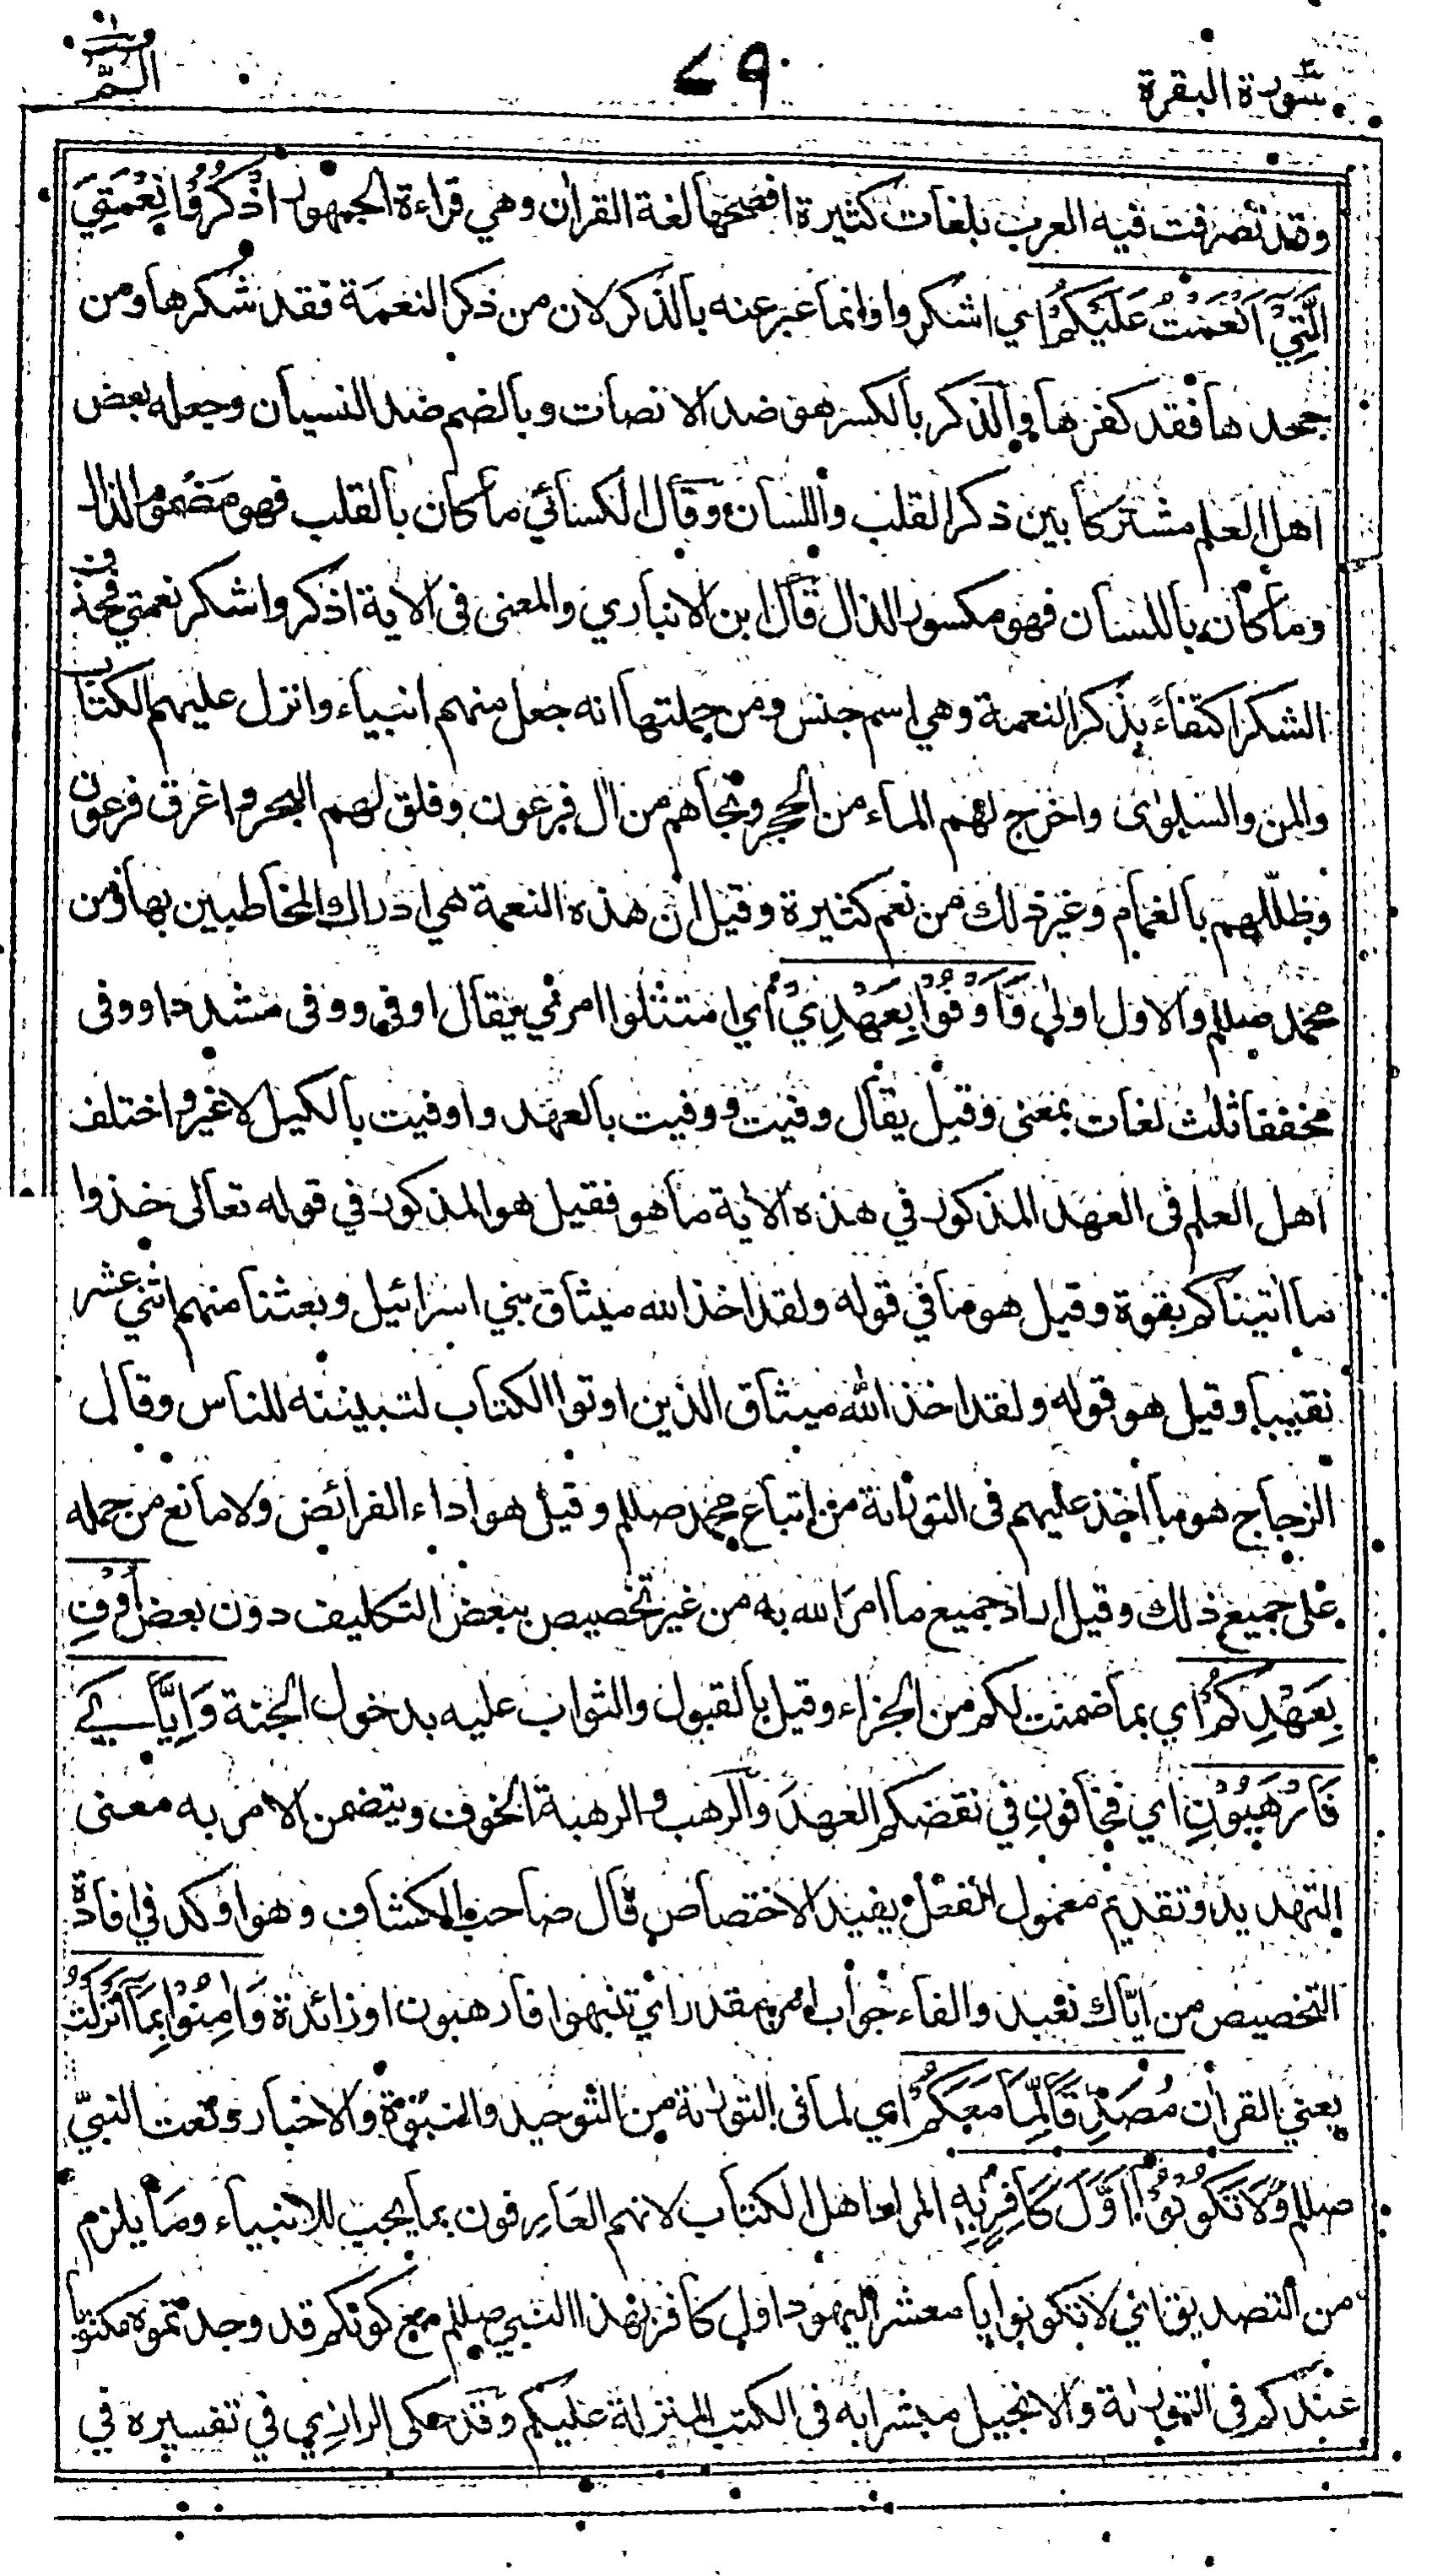 سورة البقرة
٩٧
الٓمّٓ
وقد تصرفت فيه العرب بلغات كثيرة افصحها لغة القران وهي قراءة الجمهور اُذْكُرُوْا نِعْمَتِيَ
الَّتِيْٓ اَنْعَمْتُ عَلَيْكُمْ اي اشكروا وانما عبر عنه بالذكر لان من ذكر النعمة فقد شكرها ومن
جحدها فقد كفرها والذكر بالكسر هو ضد الانصات وبالضم ضد النسيان وجعله بعض
اهل العلم مشتركا بين ذكر القلب واللسان وقال الكسائي ما كان بالقلب فهو مضموم الذال
وما كان باللسان فهو مكسور الذال قال ابن الانباري والمعنى فى الاية اذكروا شكر نعمتي فحذف
الشكر اكتفاءً بذكر النعمة وهي اسم جنس ومن جملتها انه جعل منهم انبياء وانزل عليهم الكتاب
والمن والسلوى واخرج لهم الماء من الحجر ونجاهم من ال فرعون وفلق لهم البحر واغرق فرعون
وظللهم بالغمام وغير ذلك من نعم كثيرة وقيل ان هذه النعمة هي ادراك المخاطبين بها زمن
محمد صللم والاول اولى وَاَوْفُوْا بِعَهْدِيْٓ اي امتثلوا امري يقال اوفى ووفى مشددا ووفى
مخففا ثلث لغات بمعنى وقيل يقال وفيت ووفيت بالعهد واوفيت بالكيل لا غير واختلف
اهل العلم فى العهد المذكور في هذه الاية ما هو فقيل هو المذكور في قوله تعالى خذوا
ما اتيناكم بقوة وقيل هو ما في قوله ولقد اخذ الله ميثاق بني اسرائيل وبعثنا منهم اثني عشر
نقيبا وقيل هو قوله ولقد اخذ الله ميثاق الذين اوتوا الكتاب لتبيننه للناس وقال
الزجاج هو ما اخذ عليهم فى التورانة من اتباع محمد صللم وقيل هو اداء الفرائض ولا مانع من حمله
على جميع ذلك وقيل اراد جميع ما امر الله به من غير تخصيص ببعض التكليف دون بعض اُوْفِ
بِعَهْدِكُمْ اي بما ضمنت لكم من الجزاء وقيل بالقبول والثواب عليه بدخول الجنة وَاِيَّايَ
فَارْهَبُوْنِ اي فخافون في نقضكم العهد والرهب والرهبة الخوف ويتضمن الامر به معنى
التهديد وتقديم معمول الفعل يفيد الاختصاص قال صاحب الكشاف وهو اوكد في افادة
التخصيص من اياك نعبد والفاء جواب امر مقدر اي تنبهوا فارهبون او زائدة وَاٰمِنُوْا بِمَآ اَنْزَلْتُ
يعني القران مُصَدِّقًا لِّمَا مَعَكُمْ اي لما فى التورانة من التوحيد والنبوة والاخبار ونعت النبيّ
صللم وَلَا تَكُوْنُوْٓا اَوَّلَ كَافِرٍۢ بِهٖ المراد اهل الكتاب لانهم العارفون بما يجب للانبياء وما يلزم
من التصديق اي لا تكونوا يا معشر اليهود اول كافر بهذا النبي صللم مع كونكم قد وجدتموه مكتوبا
عندكم في التورانة والانجيل مبشرا به فى الكتب المنزلة عليكم وقد حكى الرازي في تفسيره في